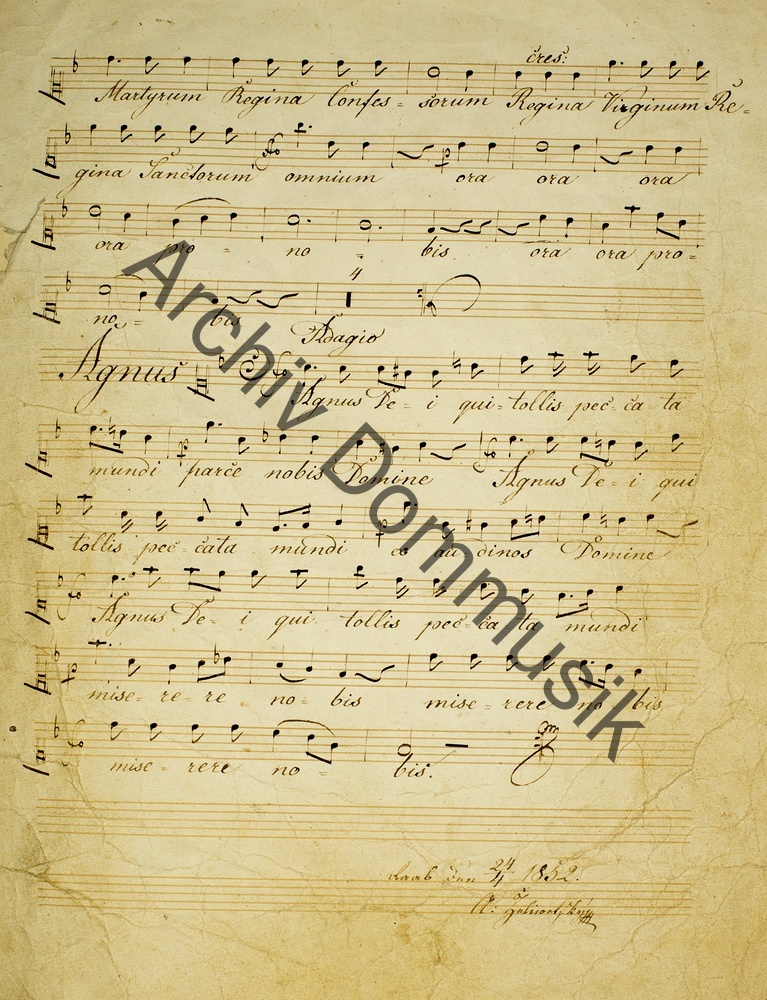 cres:
Martyrum Regina Confes = sorum Regina Virginum Re =
gina Sanctorum omnium ora ora ora
ora pro = no = bis. ora ora pro =
no = bis
4
Adagio
Agnus
Agnus De = i qui = tollis pec = ca = ta
mundi parce nobis Domine Agnus De = i qui
tollis pec = cata mundi ex au dinos Domine
Agnus De = i qui tollis pec = ca = ta mundi
mise = re = re no = bis mise = rere no = bis
mise = rere no = bis.
Raab den 24/4 1852.
A:
Archiv Dommusik